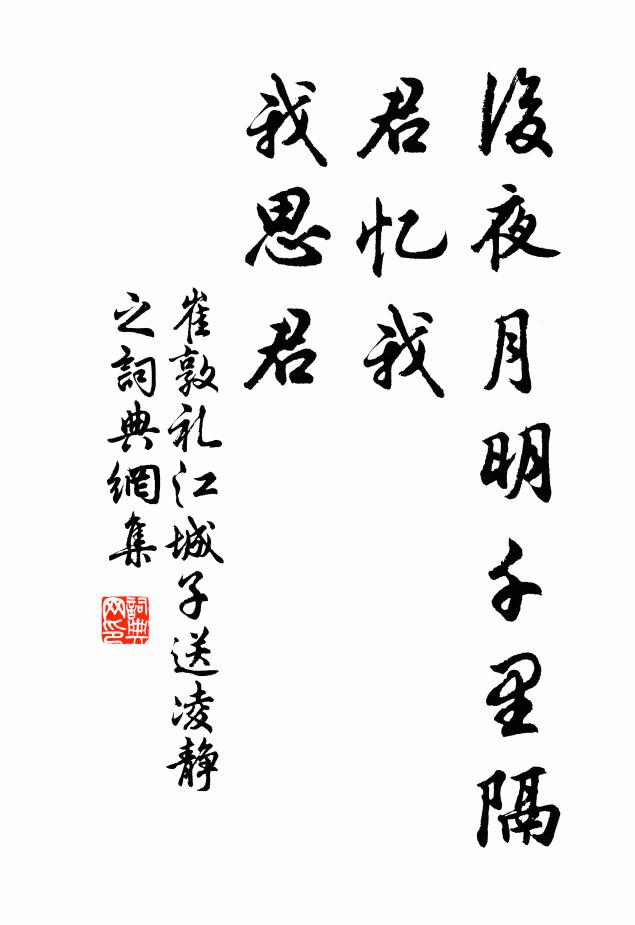 後夜月明千里隔
君忆我
我思君
崔敦礼江城子送凌静
之詞典網集
詞典网印